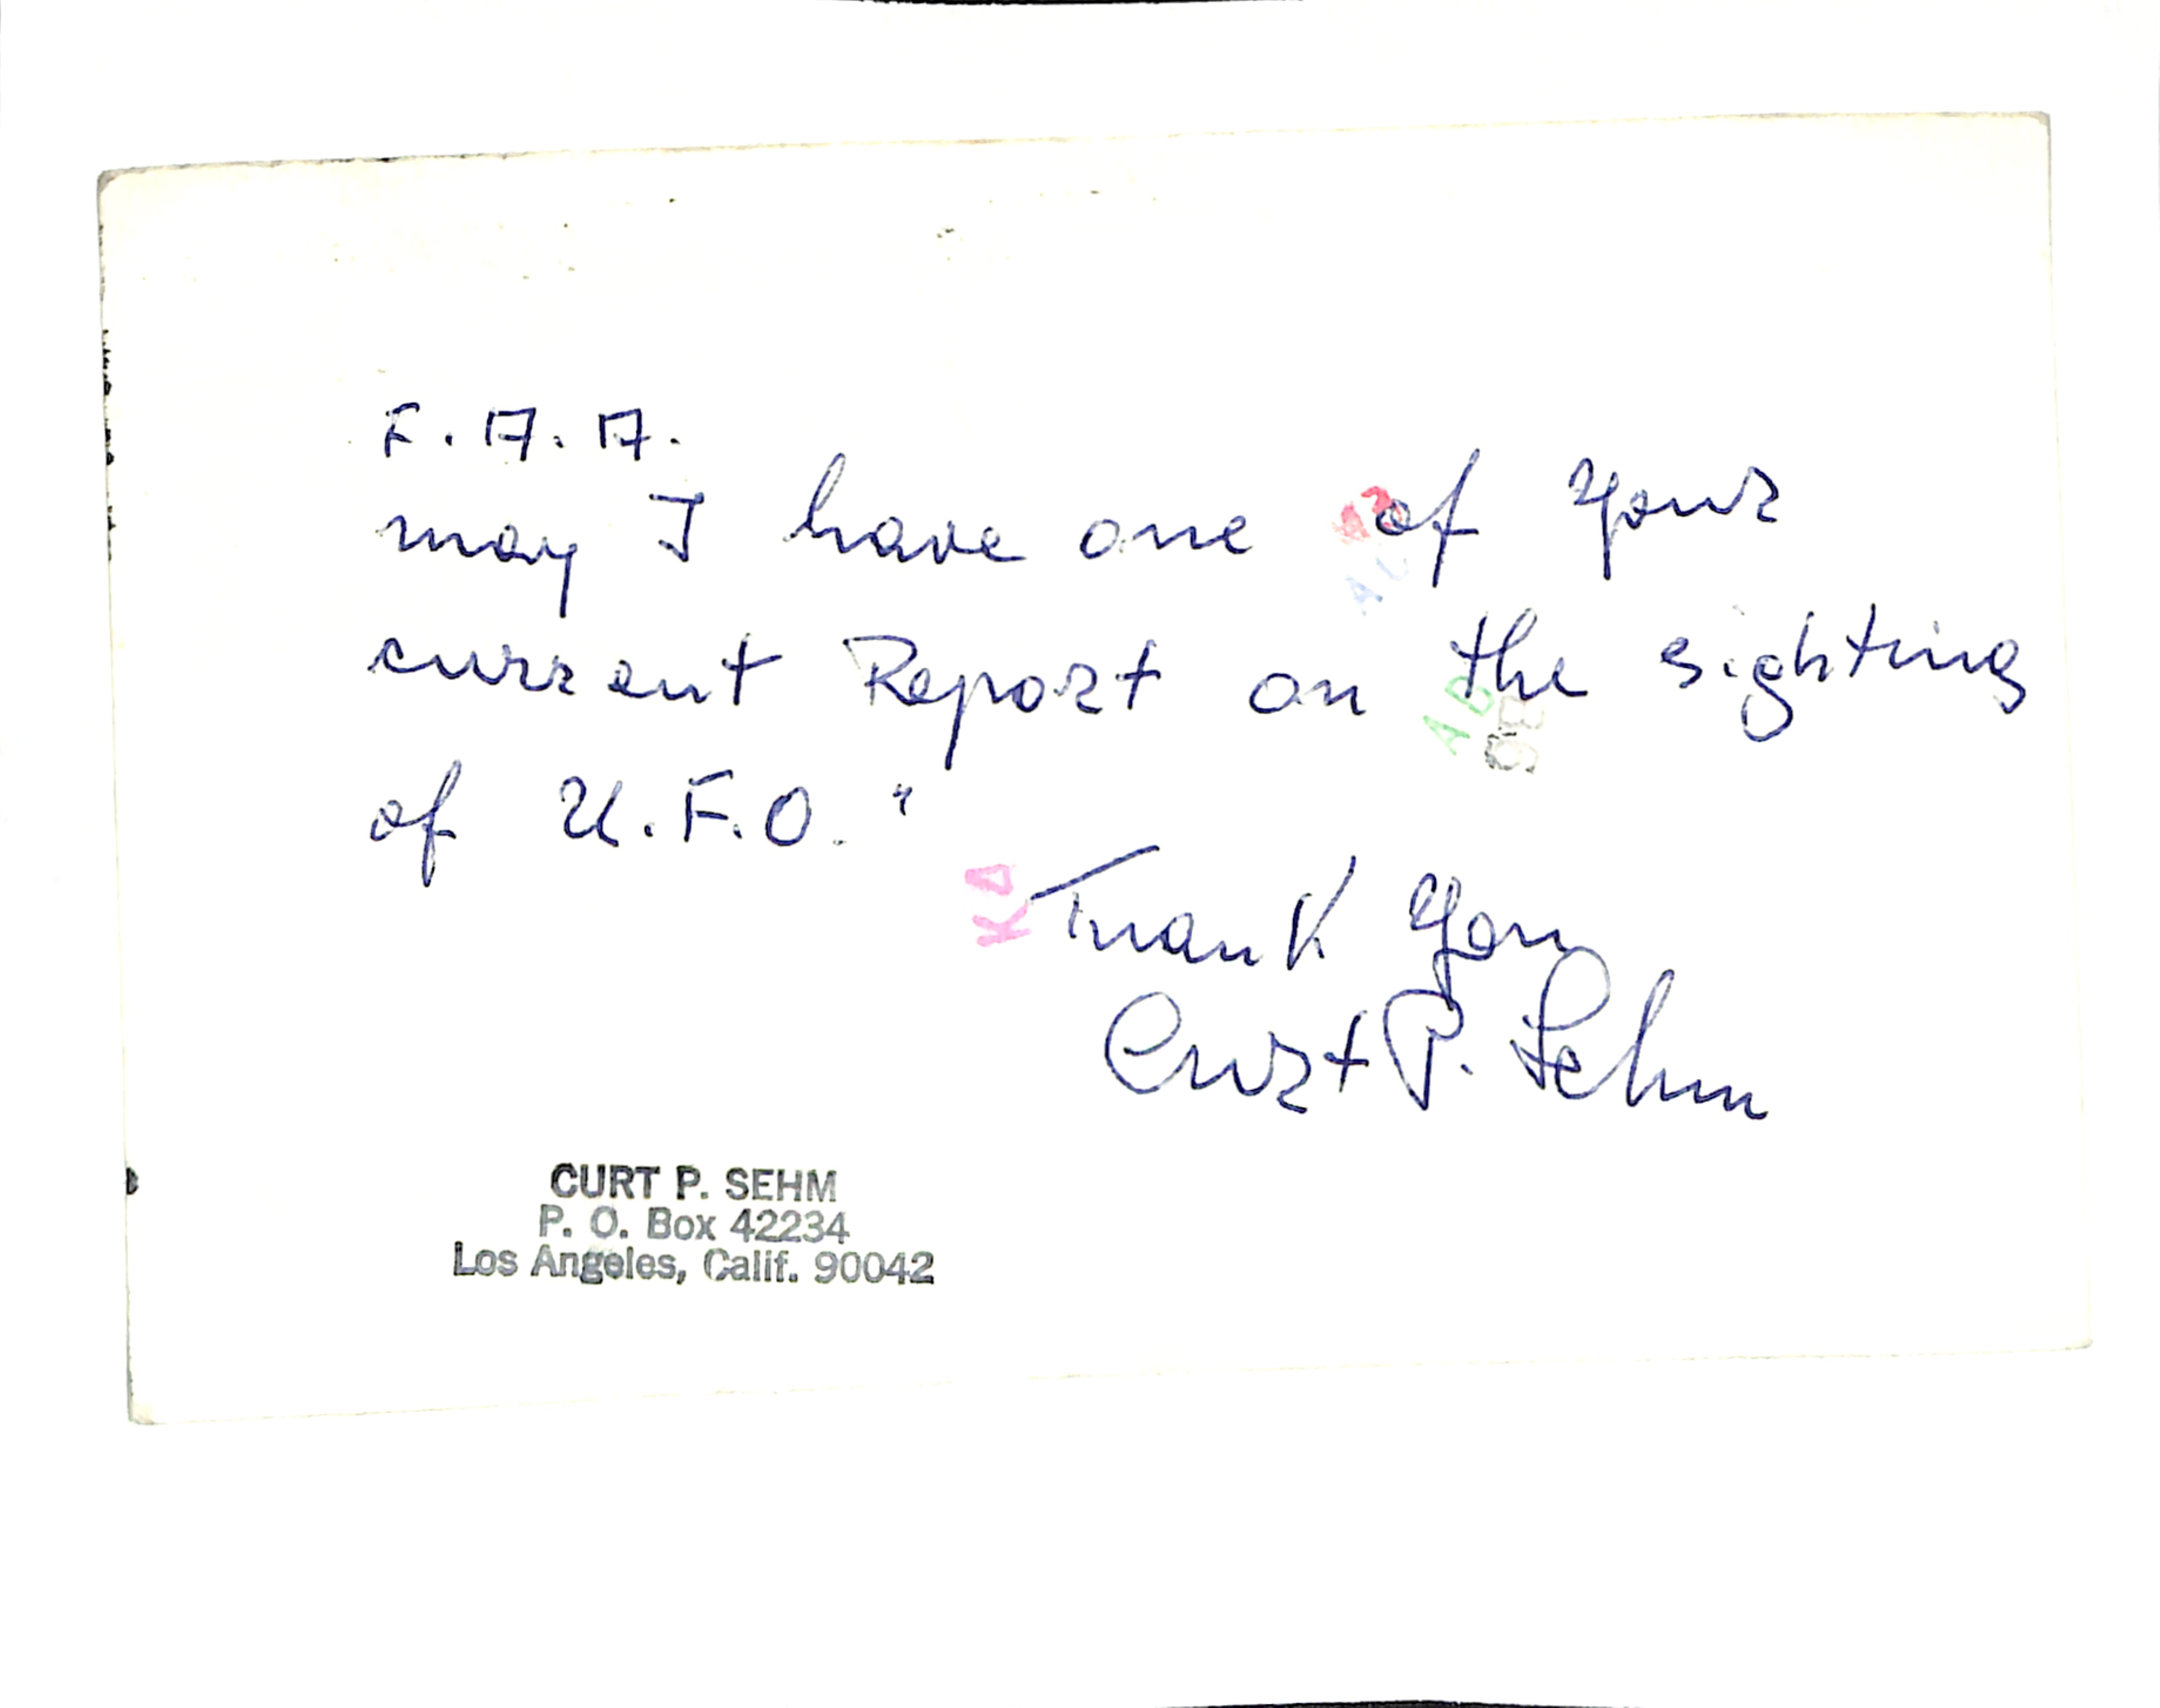 F.A.A.
may I have one of your
current Report on the sighting
of U.F.O. "
Thank you
Curt P. Sehm
CURT P. SEHM
P. O. Box 42234
Los Angeles, Calif. 90042